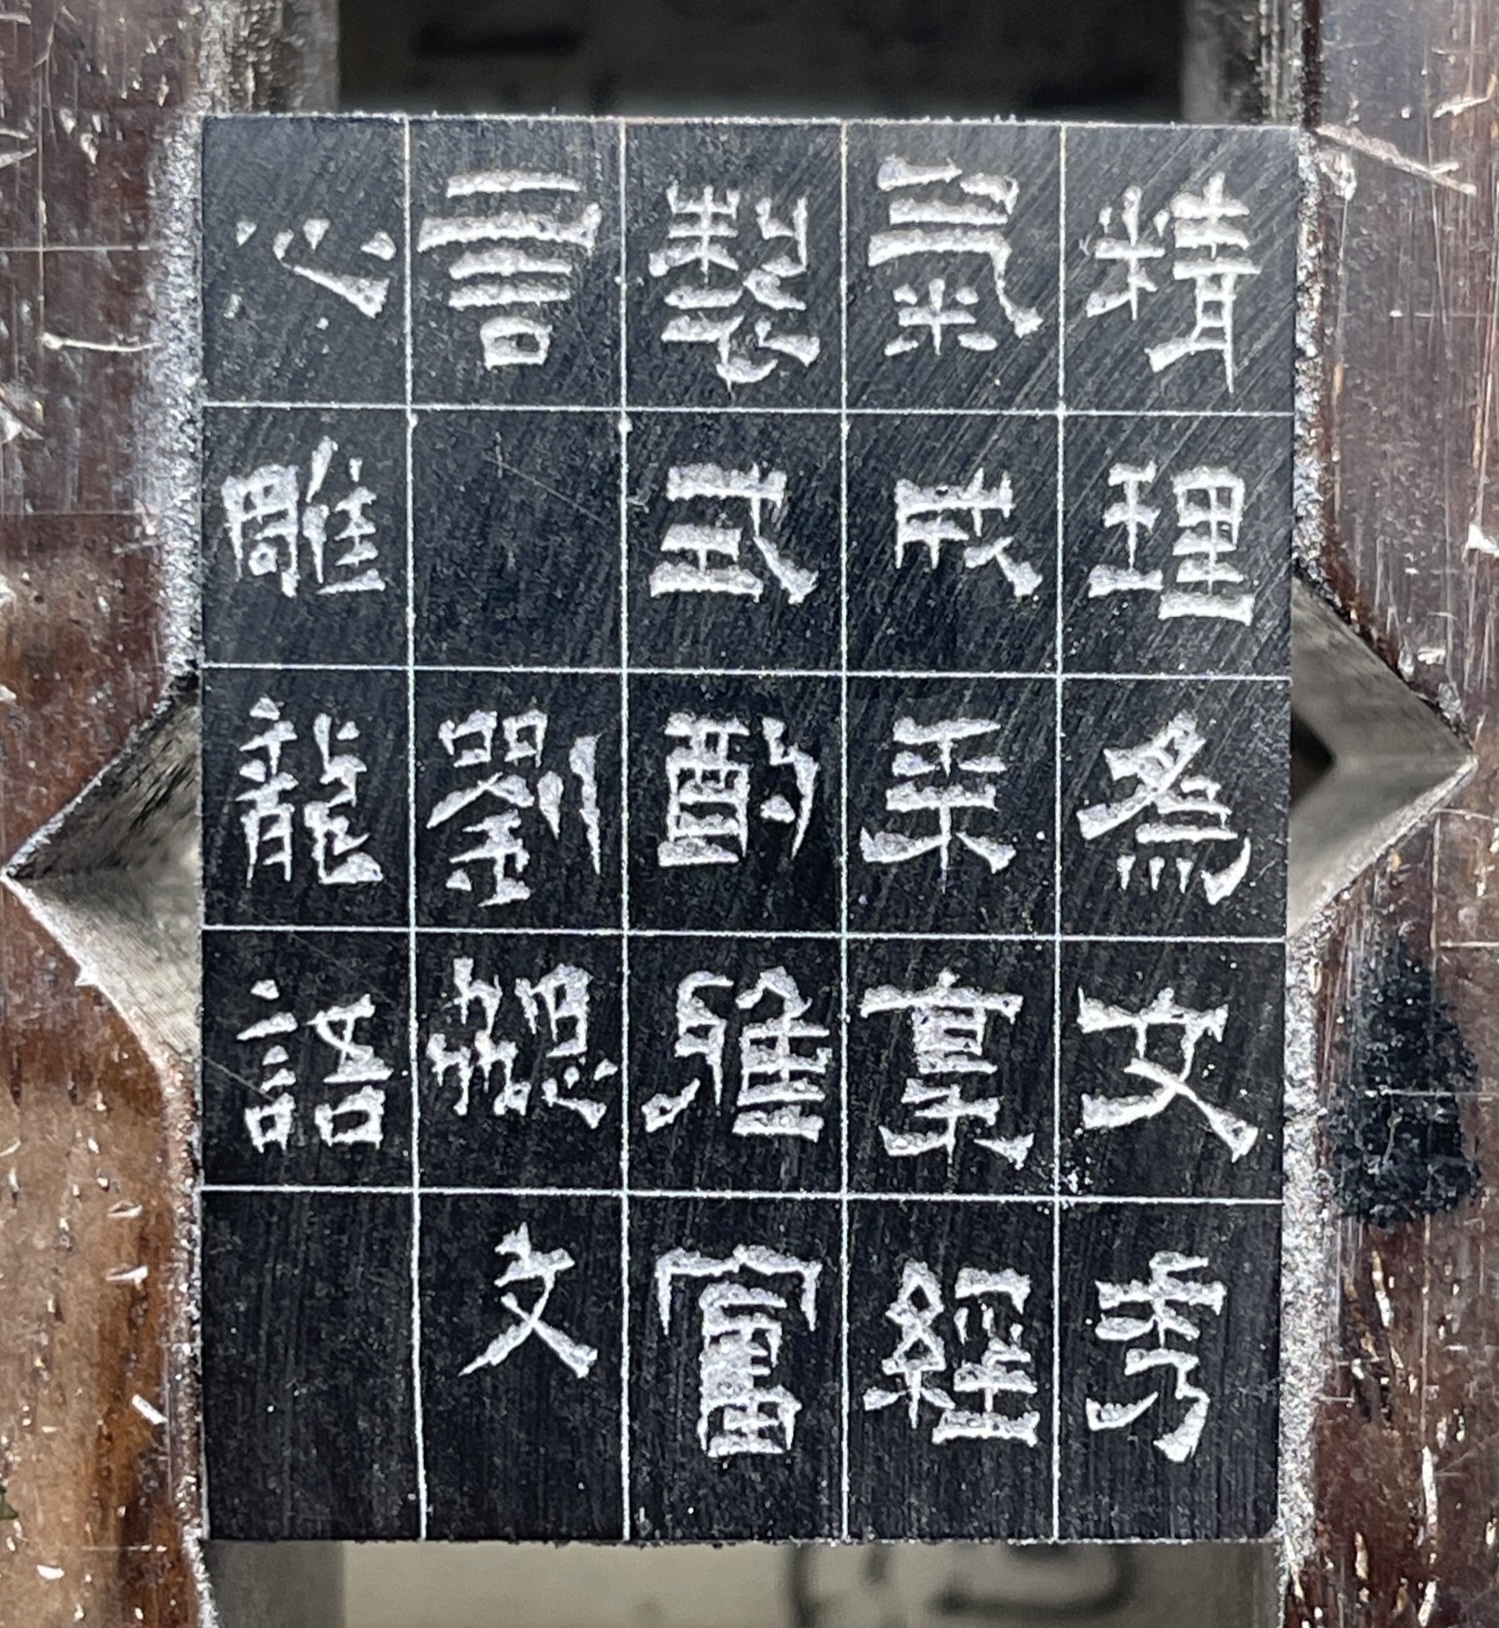 精理為文秀
氣成采稟經
製式酌雅富
言 劉勰文
心雕龍語